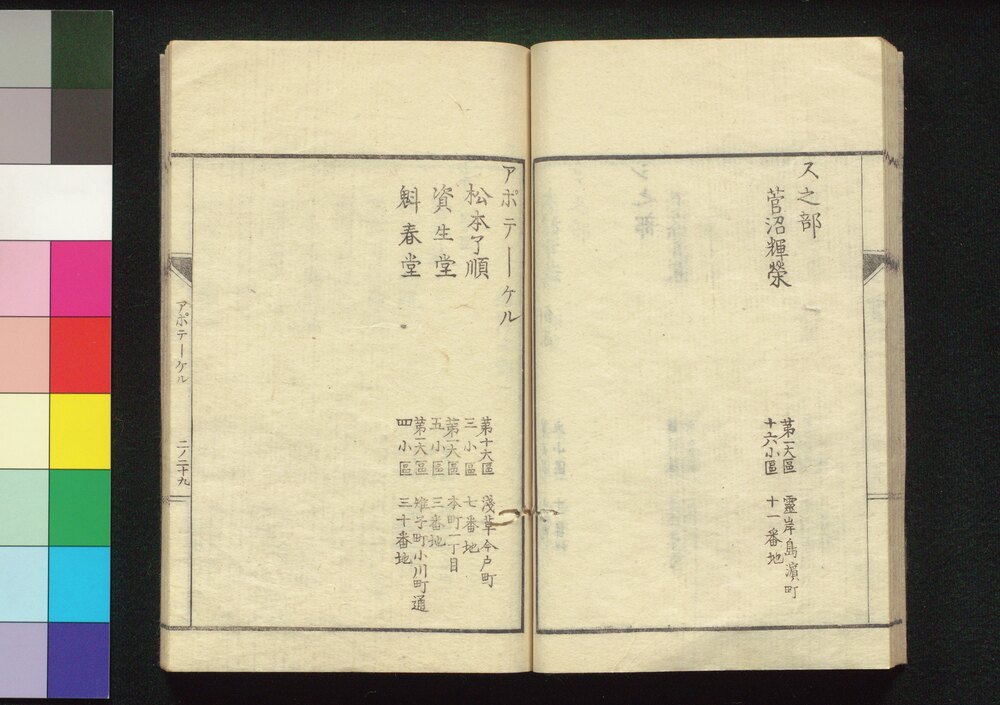 ス之部
菅沼輝榮
第一大區 靈岸島濱町
十六小區 十一番地
アポテーケル
松本了順
第十大區 淺草今戸町
三小區 七番地
資生堂
第一大區 本町一丁目
五小區 三番地
魁春堂
第一大區 雉子町小川町通
四小區 三十番地
アポテーケル
二ノ二十九